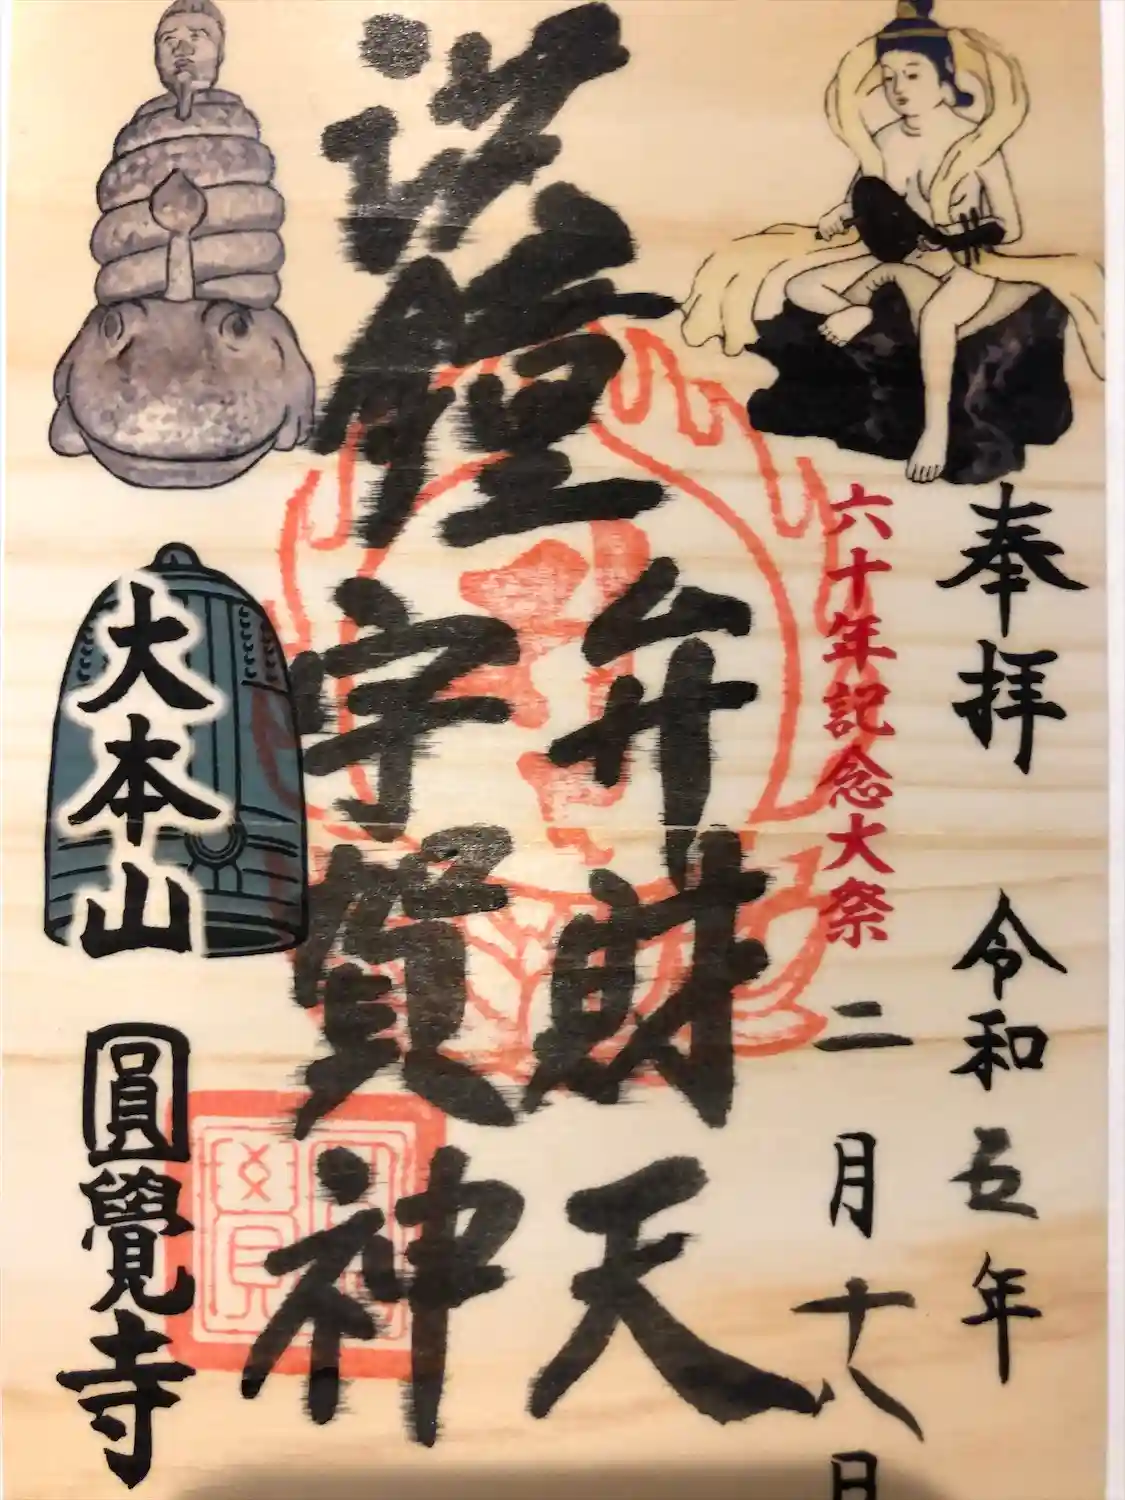 奉拝 令和五年
六十年記念大祭
二月十八日
洪鐘
弁財天
宇賀神
大本山 圓覺寺